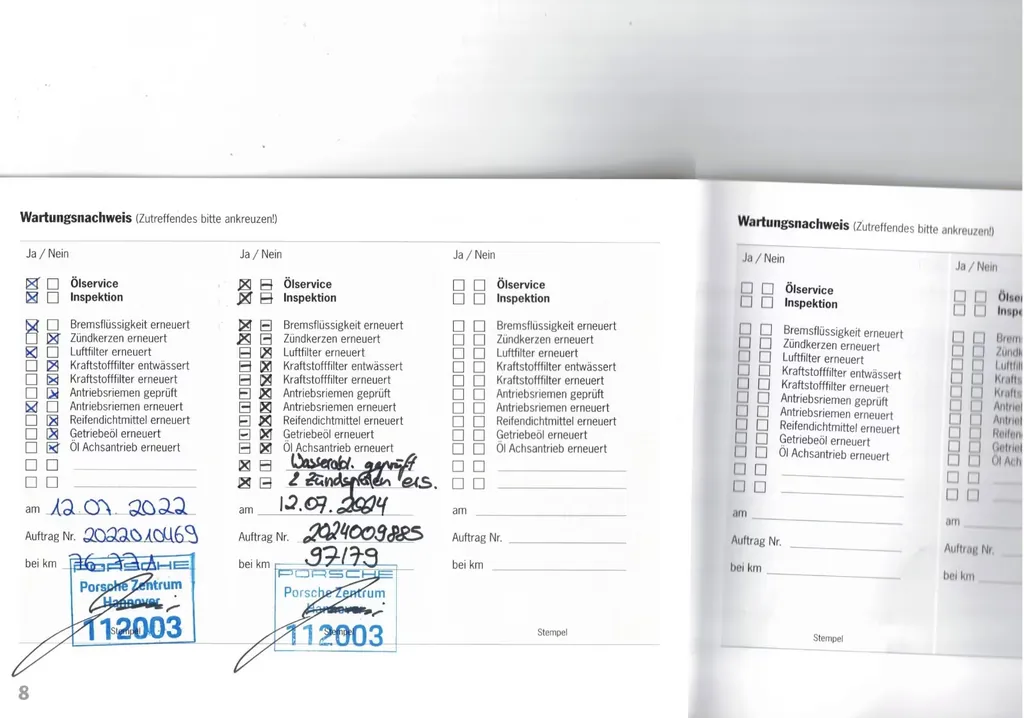 Wartungsnachweis (Zutreffendes bitte ankreuzen!)
Ja / Nein
Ölservice
Inspektion
Bremsflüssigkeit erneuert
Zündkerzen erneuert
Luftfilter erneuert
Kraftstofffilter entwässert
Kraftstofffilter erneuert
Antriebsriemen geprüft
Antriebsriemen erneuert
Reifendichtmittel erneuert
Getriebeöl erneuert
Öl Achsantrieb erneuert
am 12.07.2022
Auftrag Nr. 2022010469
bei km
PORSCHE
Porsche Zentrum
Hannover
112003
Stempel
8
Ja / Nein
Ölservice
Inspektion
Bremsflüssigkeit erneuert
Zündkerzen erneuert
Luftfilter erneuert
Kraftstofffilter entwässert
Kraftstofffilter erneuert
Antriebsriemen geprüft
Antriebsriemen erneuert
Reifendichtmittel erneuert
Getriebeöl erneuert
Öl Achsantrieb erneuert
geprüft
2 Zündspulen
am 12.07.2024
Auftrag Nr. 2024009885
bei km 97179
PORSCHE
Porsche Zentrum
Hannover
112003
Stempel
Ja / Nein
Ölservice
Inspektion
Bremsflüssigkeit erneuert
Zündkerzen erneuert
Luftfilter erneuert
Kraftstofffilter entwässert
Kraftstofffilter erneuert
Antriebsriemen geprüft
Antriebsriemen erneuert
Reifendichtmittel erneuert
Getriebeöl erneuert
Öl Achsantrieb erneuert
am
Auftrag Nr.
bei km
Stempel
Wartungsnachweis (Zutreffendes bitte ankreuzen!)
Ja / Nein
Ölservice
Inspektion
Bremsflüssigkeit erneuert
Zündkerzen erneuert
Luftfilter erneuert
Kraftstofffilter entwässert
Kraftstofffilter erneuert
Antriebsriemen geprüft
Antriebsriemen erneuert
Reifendichtmittel erneuert
Getriebeöl erneuert
Öl Achsantrieb erneuert
am
Auftrag Nr.
bei km
Stempel
Ja / Nein
Ölser
Inspe
Brem
Zünd
Luftfil
Krafts
Krafts
Antrie
Antrie
Reifen
Getrie
Öl Ach
am
Auftrag Nr.
bei km